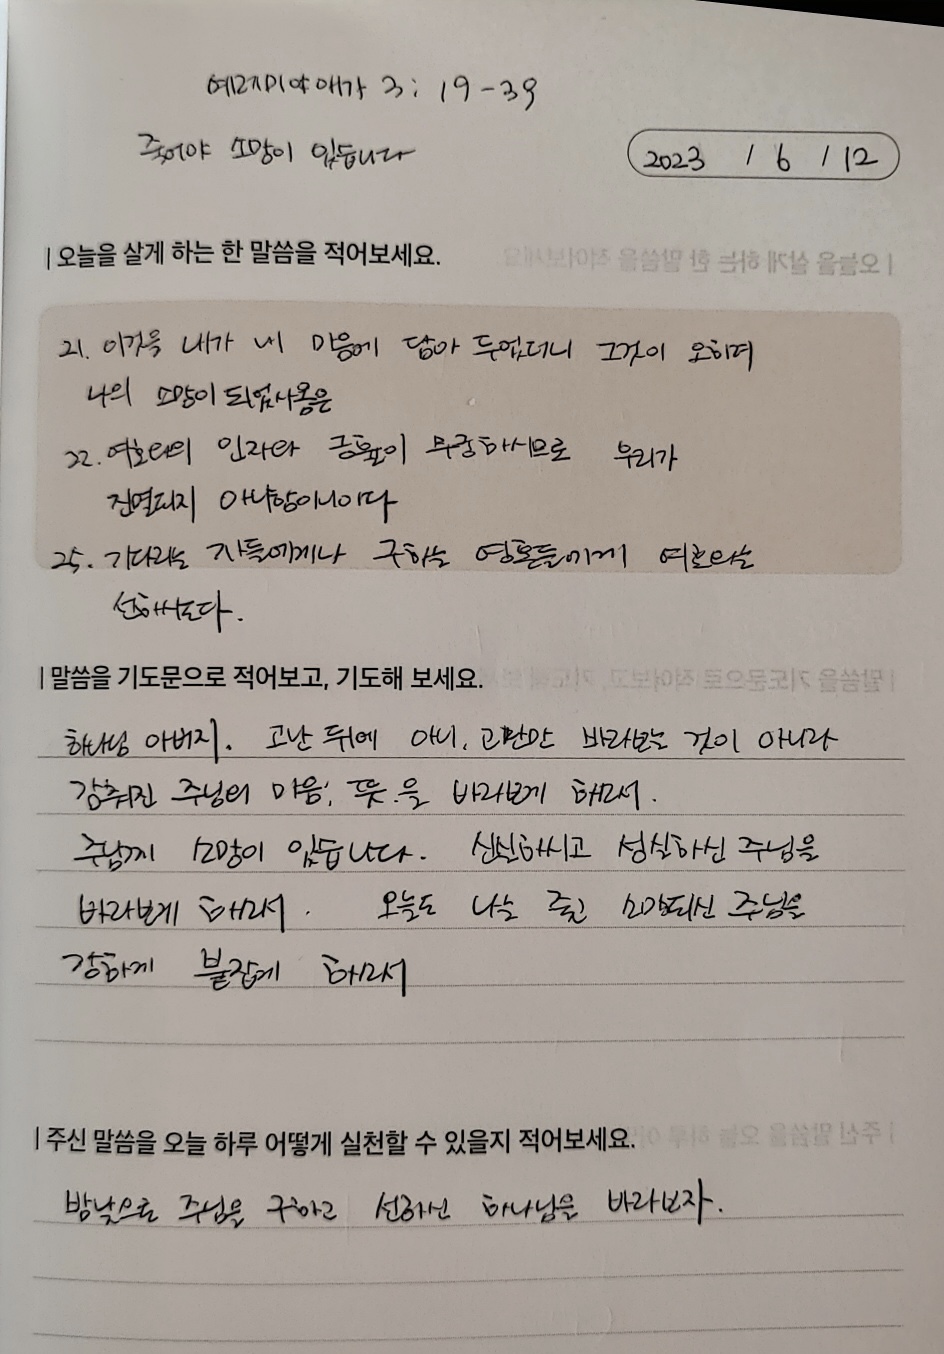 예레미야 애가 3 : 19 - 39
죽어야 소망이 있습니다
2023 / 6 / 12
| 오늘을 살게 하는 한 말씀을 적어보세요.
21. 이것을 내가 내 마음에 담아 두었더니 그것이 오히려
나의 소망이 되었사옴은
22. 여호와의 인자와 긍휼이 무궁하시므로 우리가
진멸되지 아니함이니이다
25. 기다리는 자들에게나 구하는 영혼들에게 여호와는
선하시도다.
| 말씀을 기도문으로 적어보고, 기도해 보세요.
하나님 아버지. 고난 뒤에 아니, 고난만 바라보는 것이 아니라
감춰진 주님의 마음, 뜻.을 바라보게 하소서.
주님께 소망이 있습니다. 신실하시고 성실하신 주님을
바라보게 하소서. 오늘도 나는 죽고 소망되신 주님을
강하게 붙잡게 하소서
| 주신 말씀을 오늘 하루 어떻게 실천할 수 있을지 적어보세요.
밤낮으로 주님을 구하고 선하신 하나님을 바라보자.